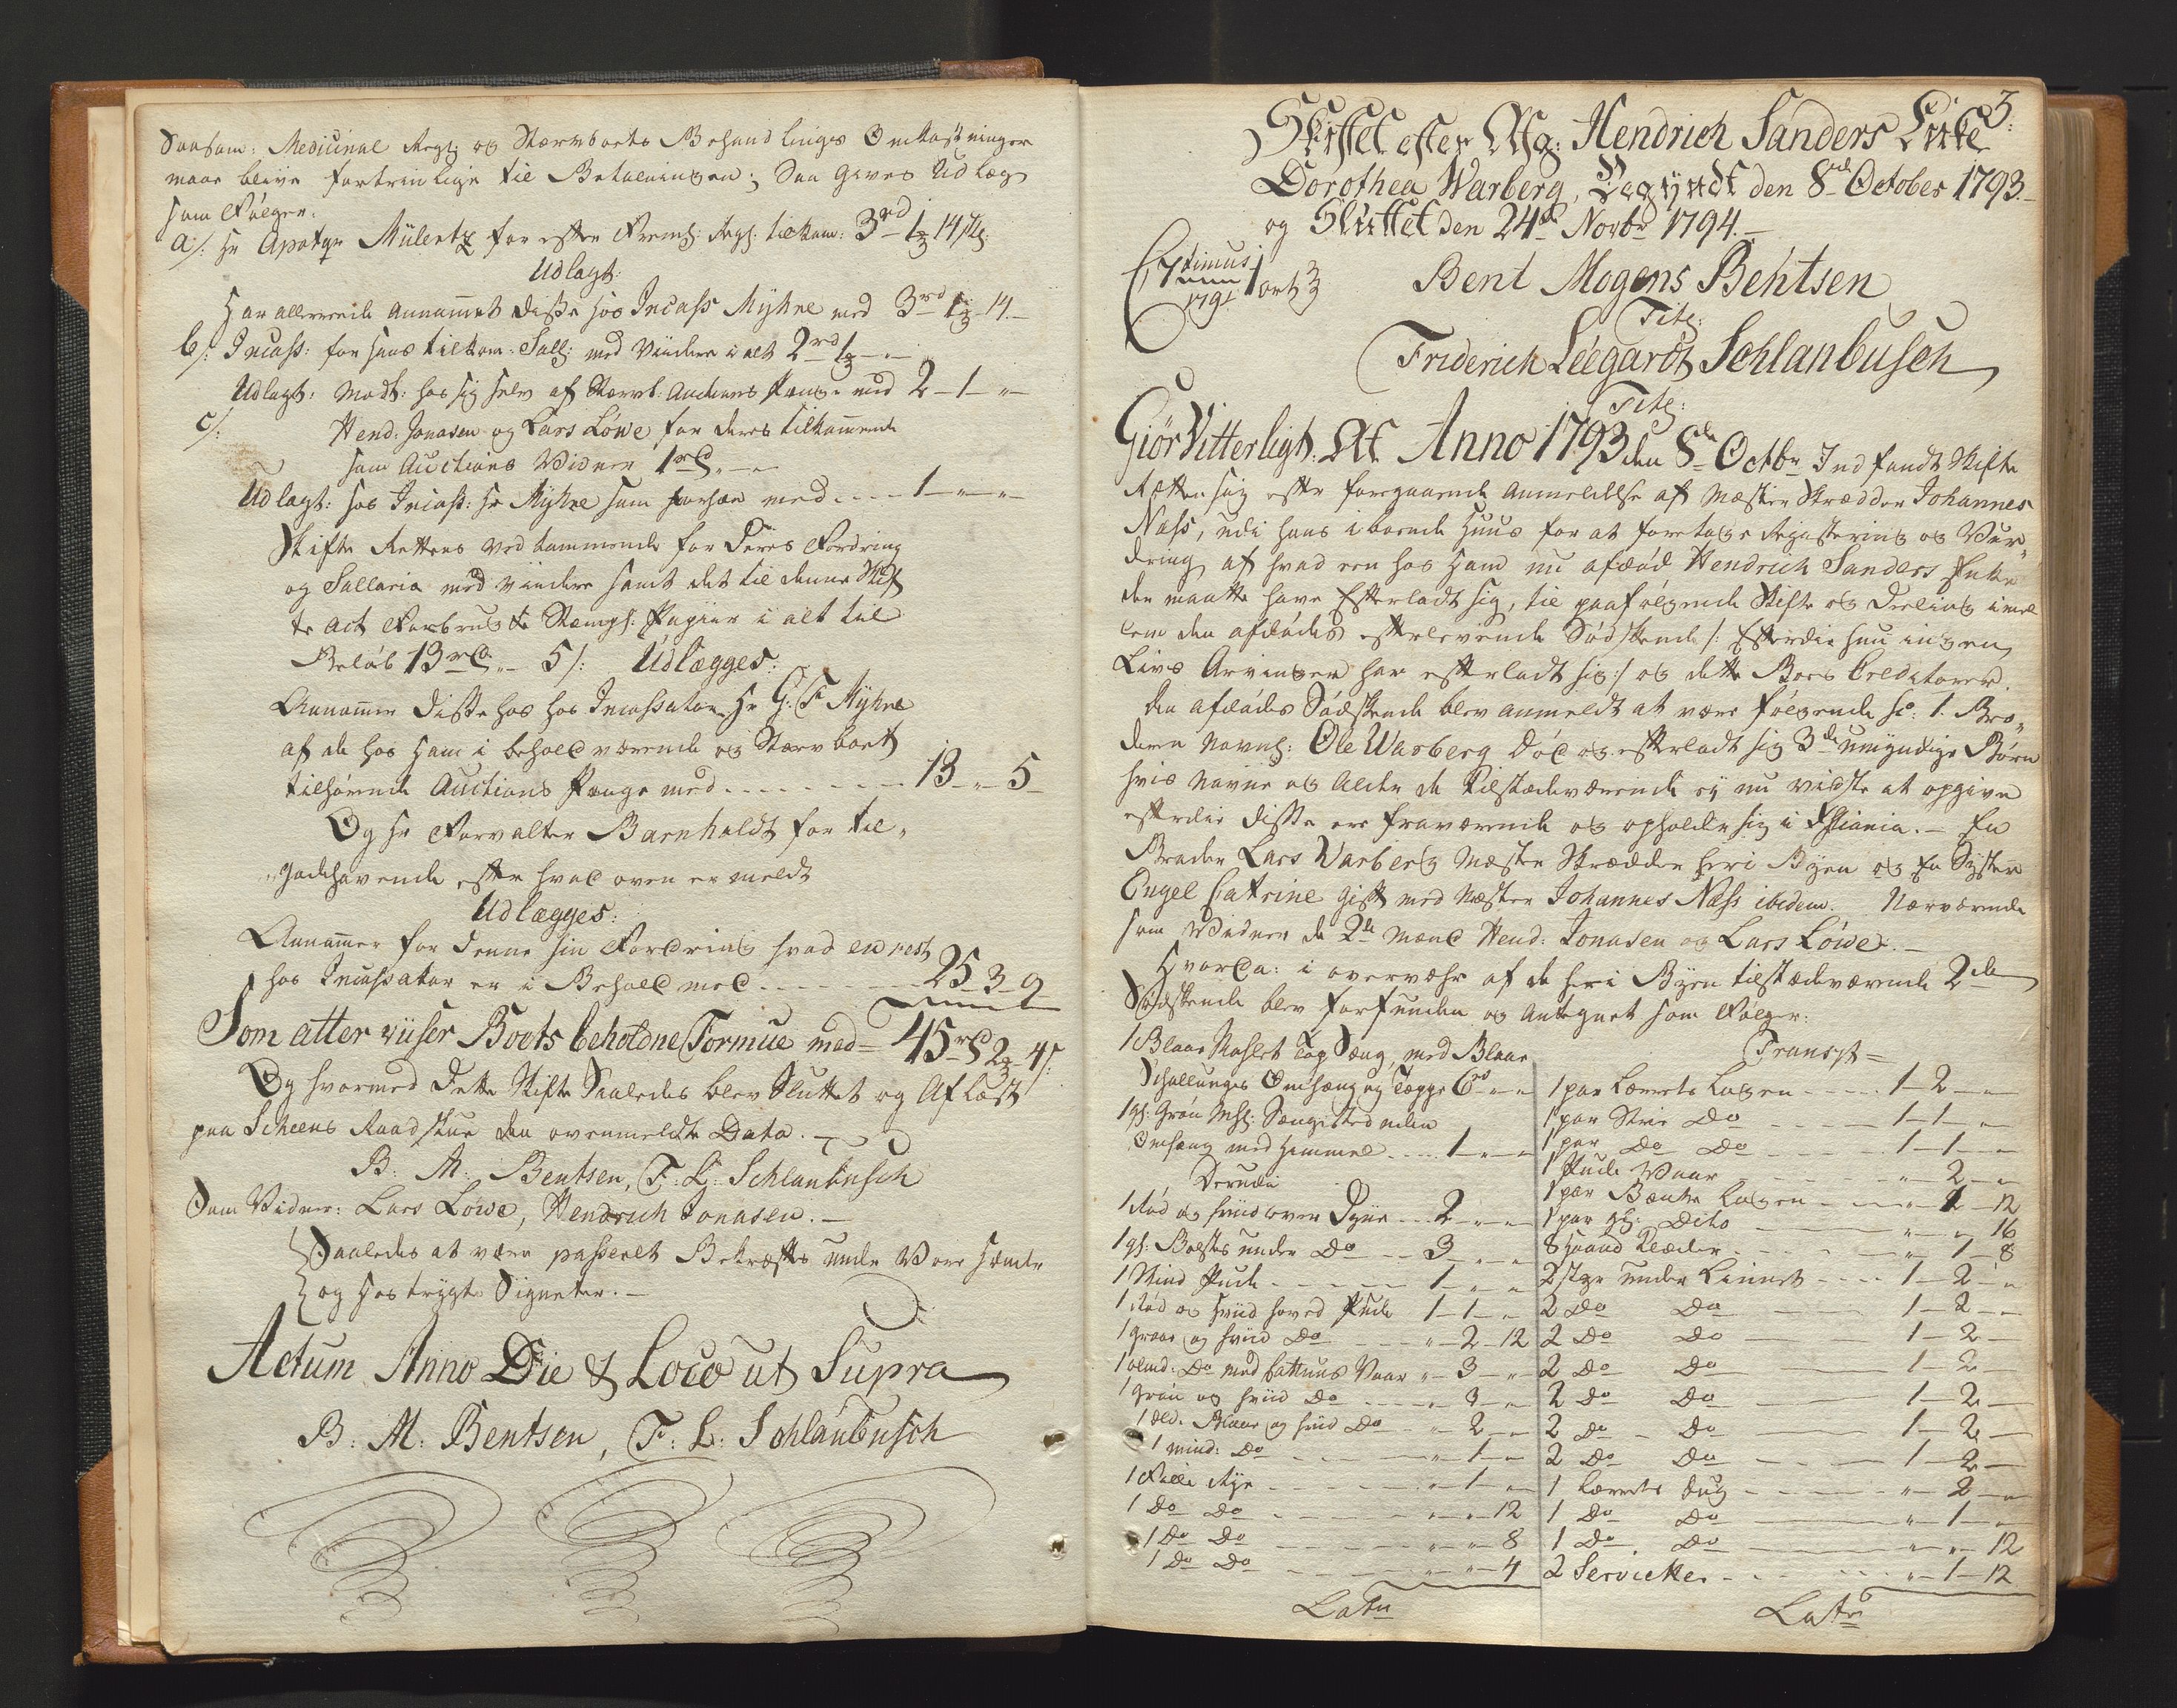 Saasom: Medicinal Regl: og Stærvboets Behandlings Omkostninger
maae blive fortrinlige til Betalningen; Saa gives Udlæg
som Følger.
a/: Hr Apotqr Mülertz for efter Fremh: Regl: tilkom: 3rd 1 14s:
Udlagt:
Har allerede annammet disse hos Incass Myhre med 3rd 1 14.
b/: Incass: for hans tilkom: Sall: med Viidere i alt 2rd 1 - "
Udlagt: Modt: hos sig selv af Stervb: Auctions Penge med 2 - 1 - "
c/: Hend: Jonasen og Lars Löwe for deres tilkommende
som Auctions Vidner 1rd " - "
Udlagt: hos Incass: Hr Myhre som forhen med .... 1 - " - "
Skifte Rettens Vedkommende for deres Fordring
og Sallaria med viidere samt det til denne Skif
te Act Forbrugte Stempl: Papiir i alt til
Beløb 13rd " - 5/: Udlægges:
Annammer disse hos hos Incassator Hr G: F Myhre
af de hos ham i behold værende og Stervboet
tilhørende Auctions Penge med ........ 13 - " - 5
Og Hr Forvalter Barnholdt for til-
godehavende efter hvad oven er meldt
Udlægges:
Annammer for denne sin Fordring hvad en rest
hos Incassator er i Behold med ........ 25 - 3 - 9
Som atter viiser Boets beholdne Formue med = 45rd 2 4s:
Og hvormed dette Skifte Saaledes blev Sluttet og Aflæst
paa Scheens Raadstue den ovenmeldte Dato.
B: M: Bentsen, F: L: Schlanbusch
Som Vidner: Lars Löwe, Hendrich Jonasen. -
Saaledes at være passeret Bekræftes under Vore Hænder
og hostrygte Signeter. -
Actum Anno Die & Loco ut Supra
B: M: Bentsen, F: L: Schlanbusch
3:
Skiftet efter Mg: Hendrich Sanders Enke
Dorothea Warberg, Begyndt den 8de October 1793.
og Sluttet den 24de Novbr 1794.
Bent Mogens Bentsen
Titl:
Friderich Leegardt Schlanbusch
Titl:
Giör Vitterligt: At Anno 1793 den 8de Octbr Indfandt Skifte
Retten sig efter foregaaende Anmeldelse af Mester Skrædder Johannes
Næss, udi hans iboende Huus for at foretage Registering og Vur-
dering af hvad een hos ham nu afdød Hendrich Sanders Enke
der maatte have Efterladt sig, til paafølgende Skifte og Deeling imel
lem den afdødes efterlevende Sødskende /: Efterdie hun ingen
Livs Arvinger har efterladt sig :/ og dette Boes Creditorer.
Den afdødes Sødskende blev anmeldt at være følgende so: 1. Bro-
deren Navnl: Ole Warberg død og efterladt sig 3de umyndige Børn
hvis Navne og Alder de tilstedeværende ey nu vidste at opgive
efterdie disse ere fraværende og opholder sig i Xstiania. - En
Broder Lars Warberg Mester Skrædder her i Byen og En Syster
Engel Catrine gift med Mester Johannes Næss ibidem. Nærværende
som Vidner de 2de Mænd Hend: Jonasen og Lars Löwe. -
Hvorda: i overvær af de her i Byen tilstedeværende 2de
Sødskende blev forefunden og Antegnet som Følger:
1 Blaae Mahlet Top Seng, med Blaae
Schallunges Omhæng og Teppe 6rd - " - "
1 gl: Grøn Mahl: Sængested uden
Omhæng med Himmel .... 1 - " - "
Derudi
1 Rød og hviid over Dyne ... 2 - " - "
1 gl: Bolster under Do ... 3 - " - "
1 Skind Pude ..... 1 - " - "
1 Rød og hviid hoved Pude 1 - 1 - "
1 graae og hviid Do " - 2 - 12
1 olmd: Do med Cattuns Vaar " - 3 - "
1 grøn og hviid Do ... " - 3 - "
1 Old: Blaae og hviid Do " - 2 - "
1 mind: Do ... " - 1 - "
1 Felle Rye ... " - 1 - "
1 Do Do ... " - " - 12
1 Do Do ... " - " - 8
1 Do Do ... " - " - 4
Latr
Transpt =
1 par Lærrets Lagen .... 1 - 2 - "
1 par Strie Do .... 1 - 1 - "
1 par Do Do .... 1 - 1 - "
1 Pude Vaar " - 2 - "
1 par Bænke Lagen ... " - 1 - 12
1 par gl: Dito " - " - 16
8 Haand Klæder ... " - 1 - 8
2 ster under Linnet ... 1 - 2 - "
2 Do Do 1 - 2 - "
2 Do Do 1 - 2 -
2 Do Do 1 - 2 -
2 Do Do 1 - 2 -
2 Do - Do 1 - 2 -
2 Do Do 1 - 2 -
1 Lærrets Dug ... " - 2 - "
1 Do Do " - 1 - "
1 Do Do " - " - 12
2 Servietter ... " - 1 - 12
Latr